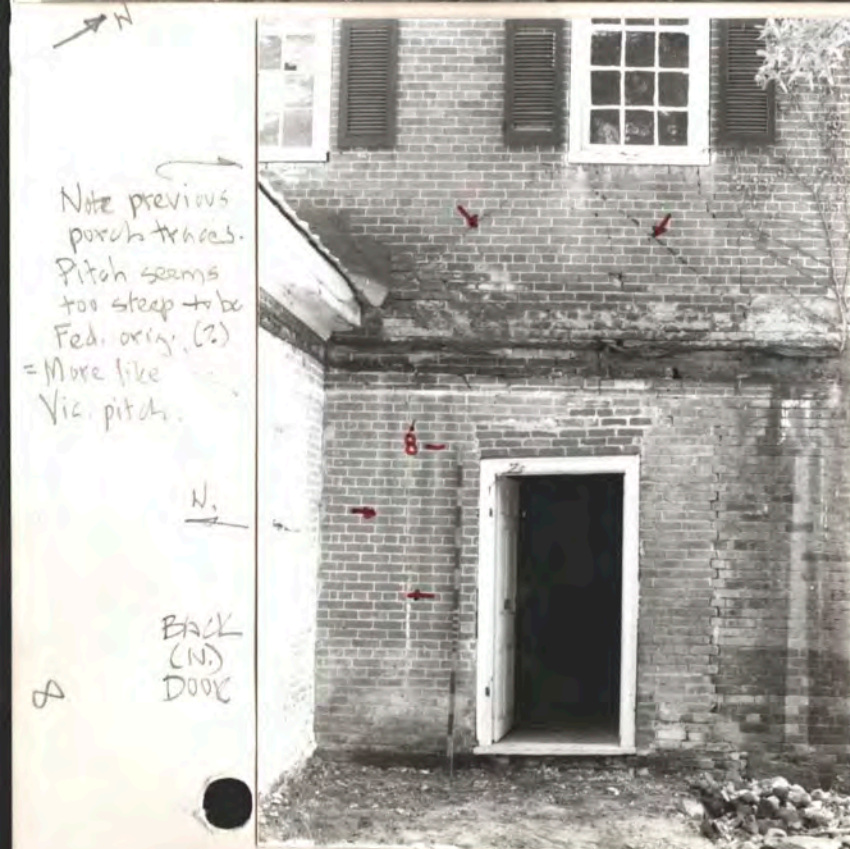 N
Note previous
porch traces.
Pitch seems
too steep to be
Fed. orig. (?)
= More like
Vic. pitch.
N.
8
Back
(N.)
Door
8